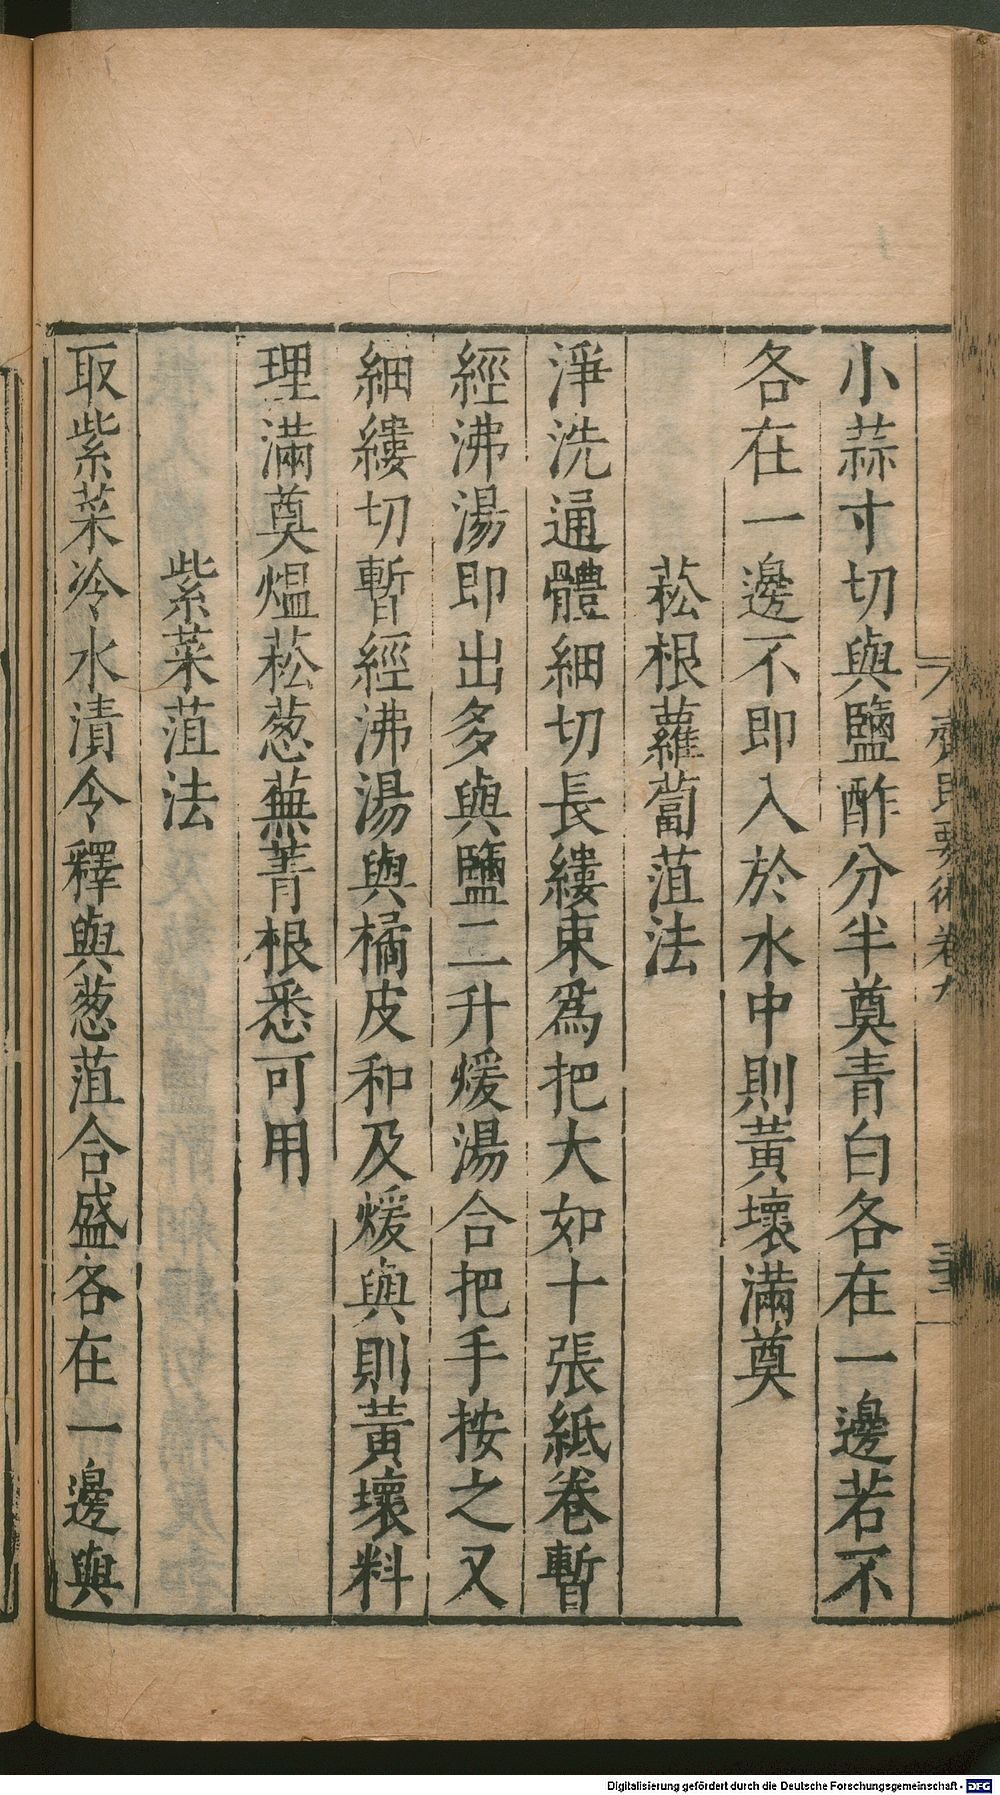 小蒜寸切與鹽酢分半奠青白各在一邊若不
各在一邊不即入於水中則黃壞滿奠
菘根蘿蔔菹法
淨洗通體細切長縷束爲把大如十張紙卷暫
經沸湯即出多與鹽二升煖湯合把手按之又
細縷切暫經沸湯與橘皮和及煖與則黃壞料
理滿奠熅菘葱蕪菁根悉可用
紫菜菹法
取紫菜冷水漬令釋與葱菹合盛各在一邊與
齊民要術卷九
Digitalisierung gefördert durch die Deutsche Forschungsgemeinschaft - DFG